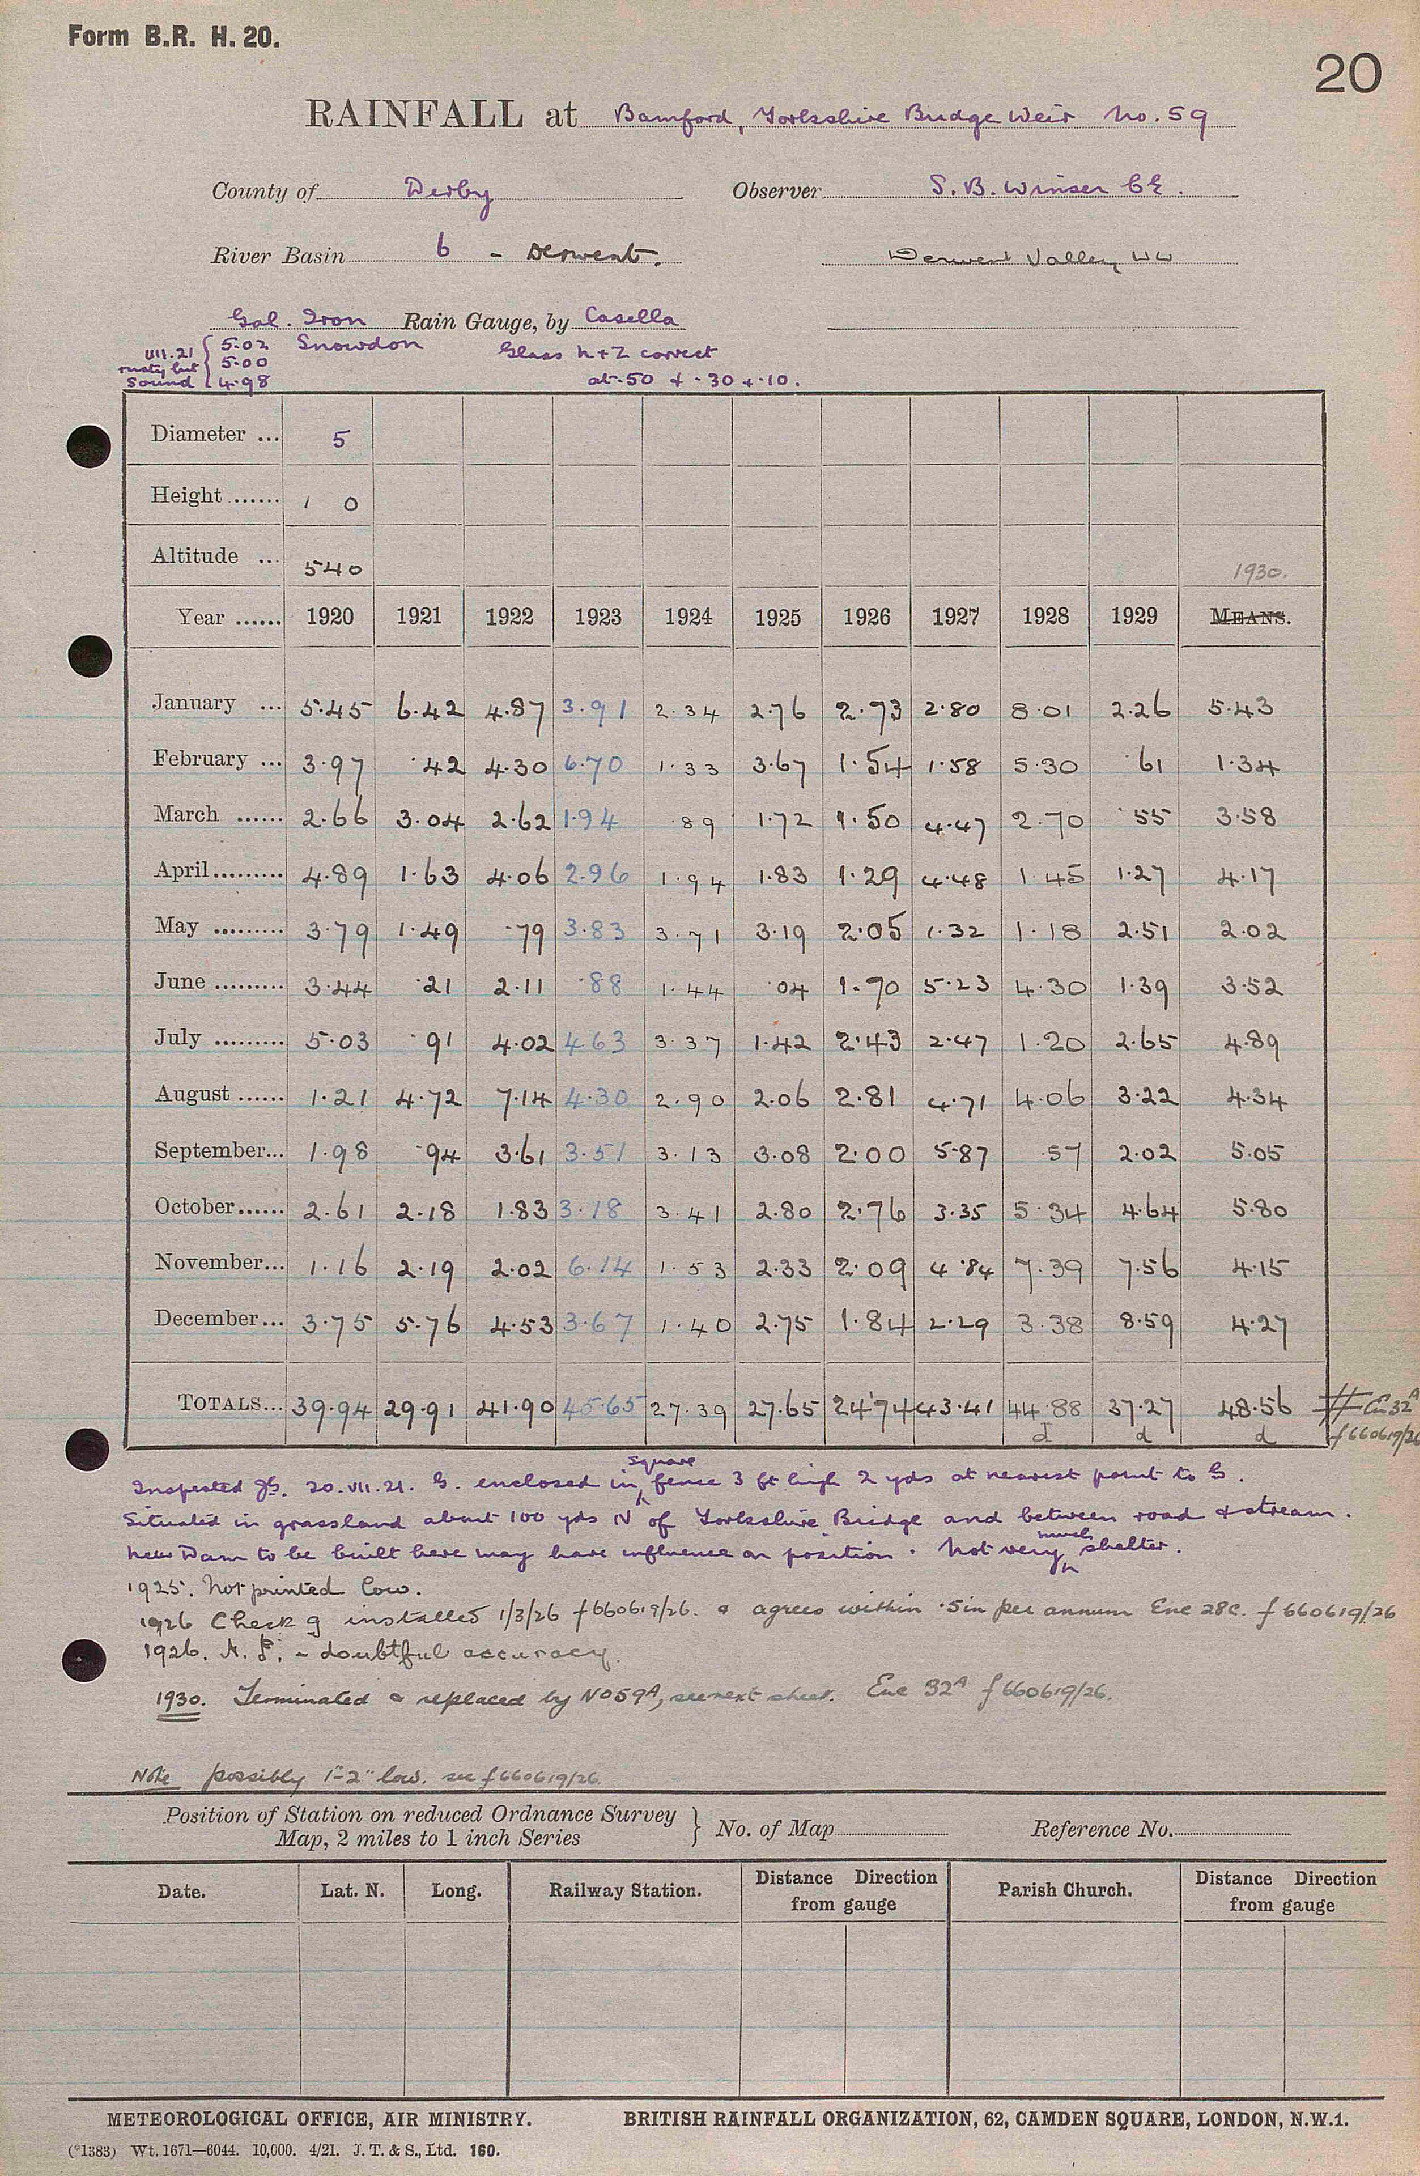 Form B.R. H. 20.
20
RAINFALL at Bamford, Yorkshire Bridge Weir No. 59
County of Derby Observer S. B. Winser CE.
River Basin 6 - Derwent. Derwent Valley WW
Gal. Iron Rain Gauge, by Casella
VII.21 rusty but sound { 5.02 5.00 4.98 Snowdon Glass h+z correct
at .50 + .30 + .10.
Diameter ... 5
Height ....... 1 0
Altitude ... 540 1930.
Year ...... 1920 1921 1922 1923 1924 1925 1926 1927 1928 1929 MEANS.
January ... 5.45 6.42 4.87 3.91 2.34 2.76 2.73 2.80 8.01 2.26 5.43
February ... 3.97 .42 4.30 6.70 1.33 3.67 1.54 1.58 5.30 .61 1.34
March ...... 2.66 3.04 2.62 1.94 .89 1.72 1.50 4.47 2.70 .55 3.58
April......... 4.89 1.63 4.06 2.96 1.94 1.83 1.29 4.48 1.45 1.27 4.17
May ......... 3.79 1.49 .79 3.83 3.71 3.19 2.05 1.32 1.18 2.51 2.02
June ......... 3.44 .21 2.11 .88 1.44 .04 1.70 5.23 4.30 1.39 3.52
July ......... 5.03 .91 4.02 4.63 3.37 1.42 2.43 2.47 1.20 2.65 4.89
August ...... 1.21 4.72 7.14 4.30 2.90 2.06 2.81 4.71 4.06 3.22 4.34
September... 1.98 .94 3.61 3.51 3.13 3.08 2.00 5.87 .57 2.02 5.05
October...... 2.61 2.18 1.83 3.18 3.41 2.80 2.76 3.35 5.34 4.64 5.80
November... 1.16 2.19 2.02 6.14 1.53 2.33 2.09 4.84 7.39 7.56 4.15
December... 3.75 5.76 4.53 3.67 1.40 2.75 1.84 2.29 3.38 8.59 4.27
TOTALS... 39.94 29.91 41.90 45.65 27.39 27.65 24.74 43.41 44.88 37.27 48.56 # Enc 32A
d d d f660619/26
Inspected 20.VII.21. G. enclosed in square fence 3 ft high 2 yds at nearest point to G.
Situated in grassland about 100 yds N of Yorkshire Bridge and between road & stream.
New Dam to be built here may have influence on position. Not very much shelter.
1925. Not printed low.
1926 Check g installed 1/3/26 f660619/26. & agrees within .5in per annum Enc 28c. f660619/26
1926. N.P. - doubtful accuracy.
1930. Terminated & replaced by No 59A, see next sheet. Enc 32A f660619/26.
Note possibly 1"-2" low. see f660619/26.
Position of Station on reduced Ordnance Survey
Map, 2 miles to 1 inch Series } No. of Map Reference No.
Date. Lat. N. Long. Railway Station. Distance Direction from gauge Parish Church. Distance Direction from gauge
METEOROLOGICAL OFFICE, AIR MINISTRY. BRITISH RAINFALL ORGANIZATION, 62, CAMDEN SQUARE, LONDON, N.W.1.
(*1383) Wt. 1671—6044. 10,000. 4/21. J. T. & S., Ltd. 160.